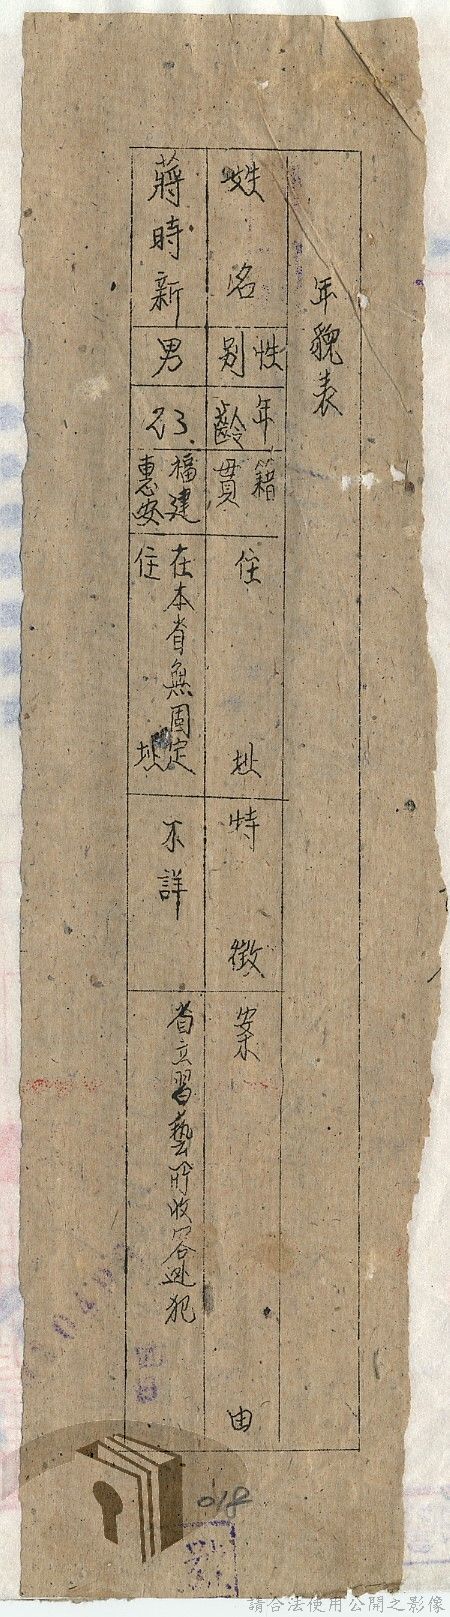 年貌表
姓名
性別
年齡
籍貫
住址
特徵
案由
蔣時新
男
23
福建
惠安
在本省無固定
住址
不詳
省立習藝所收容逃犯
018
請合法使用公開之影像